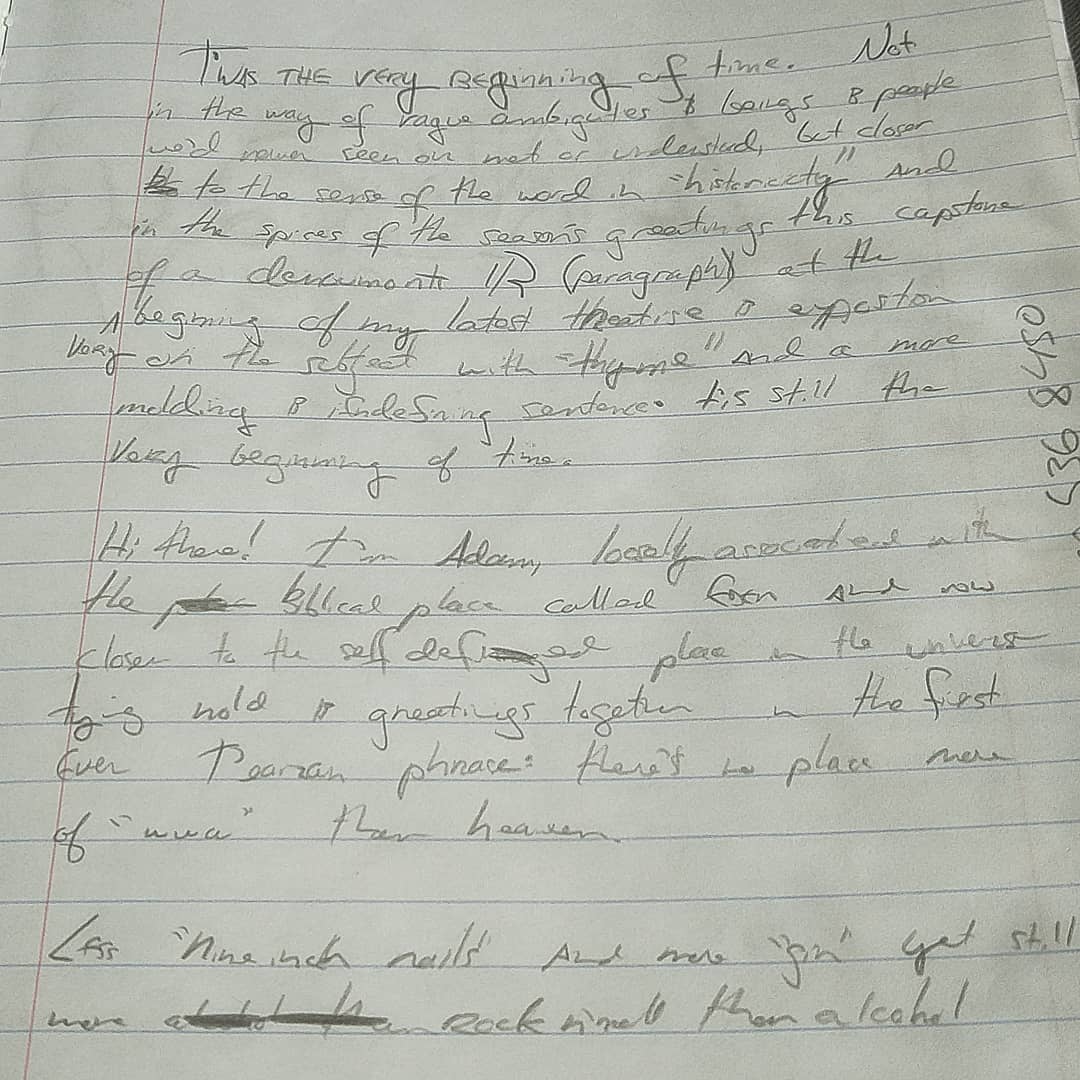 T'WAS THE VERY BEGinning of time. Not
in the way of vague ambiguties & beings & people
we'd never seen or met or understand, but closer
to the sense of the word in "historicity" And
in the spices of the season's greetings this capstone
of a (paragraph) at the
beginning of my latest &
Very on the subject with "thyme" And a more
melding & sentence. tis still the
Very beginning of time.
Hi there! I'm Adam, loosely associated with
the place called And now
closer to the self place in the univers
hold greatings together in the first
Ever phrase: there's no place more
of " " than heaven
Less "Nine inch nails" And more "gin" yet still
more Rock than alcohol
536 8450